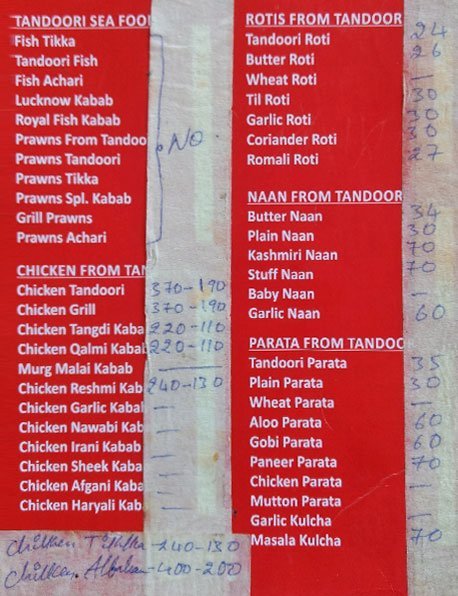 TANDOORI SEA FOO
Fish Tikka
Tandoori Fish
Fish Achari
Lucknow Kabab
Royal Fish Kabab
Prawns From Tandoo
NO
Prawns Tandoori
Prawns Tikka
Prawns Spl. Kabab
Grill Prawns
Prawns Achari
CHICKEN FROM TAN
Chicken Tandoori 370-190
Chicken Grill 370-190
Chicken Tangdi Kabab 220-110
Chicken Qalmi Kabab 220-110
Murg Malai Kabab —
Chicken Reshmi Kabab 240-130
Chicken Garlic Kabab —
Chicken Nawabi Kabab —
Chicken Irani Kabab —
Chicken Sheek Kabab —
Chicken Afgani Kabab —
Chicken Haryali Kabab —
Chicken Tikka-240-130
Chicken -400-200
ROTIS FROM TANDOOR
Tandoori Roti 24
Butter Roti 26
Wheat Roti —
Til Roti 30
Garlic Roti 30
Coriander Roti 30
Romali Roti 27
NAAN FROM TANDOOR
Butter Naan 34
Plain Naan 30
Kashmiri Naan 70
Stuff Naan 70
Baby Naan —
Garlic Naan 60
PARATA FROM TANDOOR
Tandoori Parata 35
Plain Parata 30
Wheat Parata —
Aloo Parata 60
Gobi Parata 60
Paneer Parata 70
Chicken Parata —
Mutton Parata —
Garlic Kulcha
Masala Kulcha 70